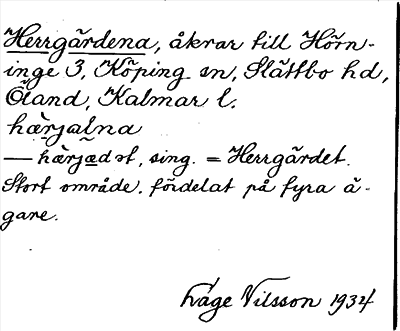 Herrgårdena, åkrar till Hörn-
inge 3, Köping sn, Slättbo hd,
Öland, Kalmar l.
hærjalna
— hærjædət, sing. = Herrgårdet.
Stort område, fördelat på fyra ä-
gare.
Åge Nilsson 1934